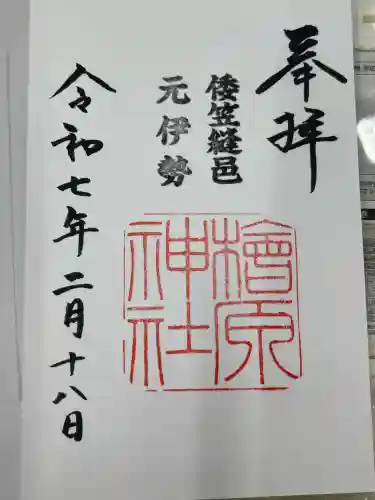 奉拝
倭笠縫邑
元伊勢
檜原神社
令和七年二月十八日